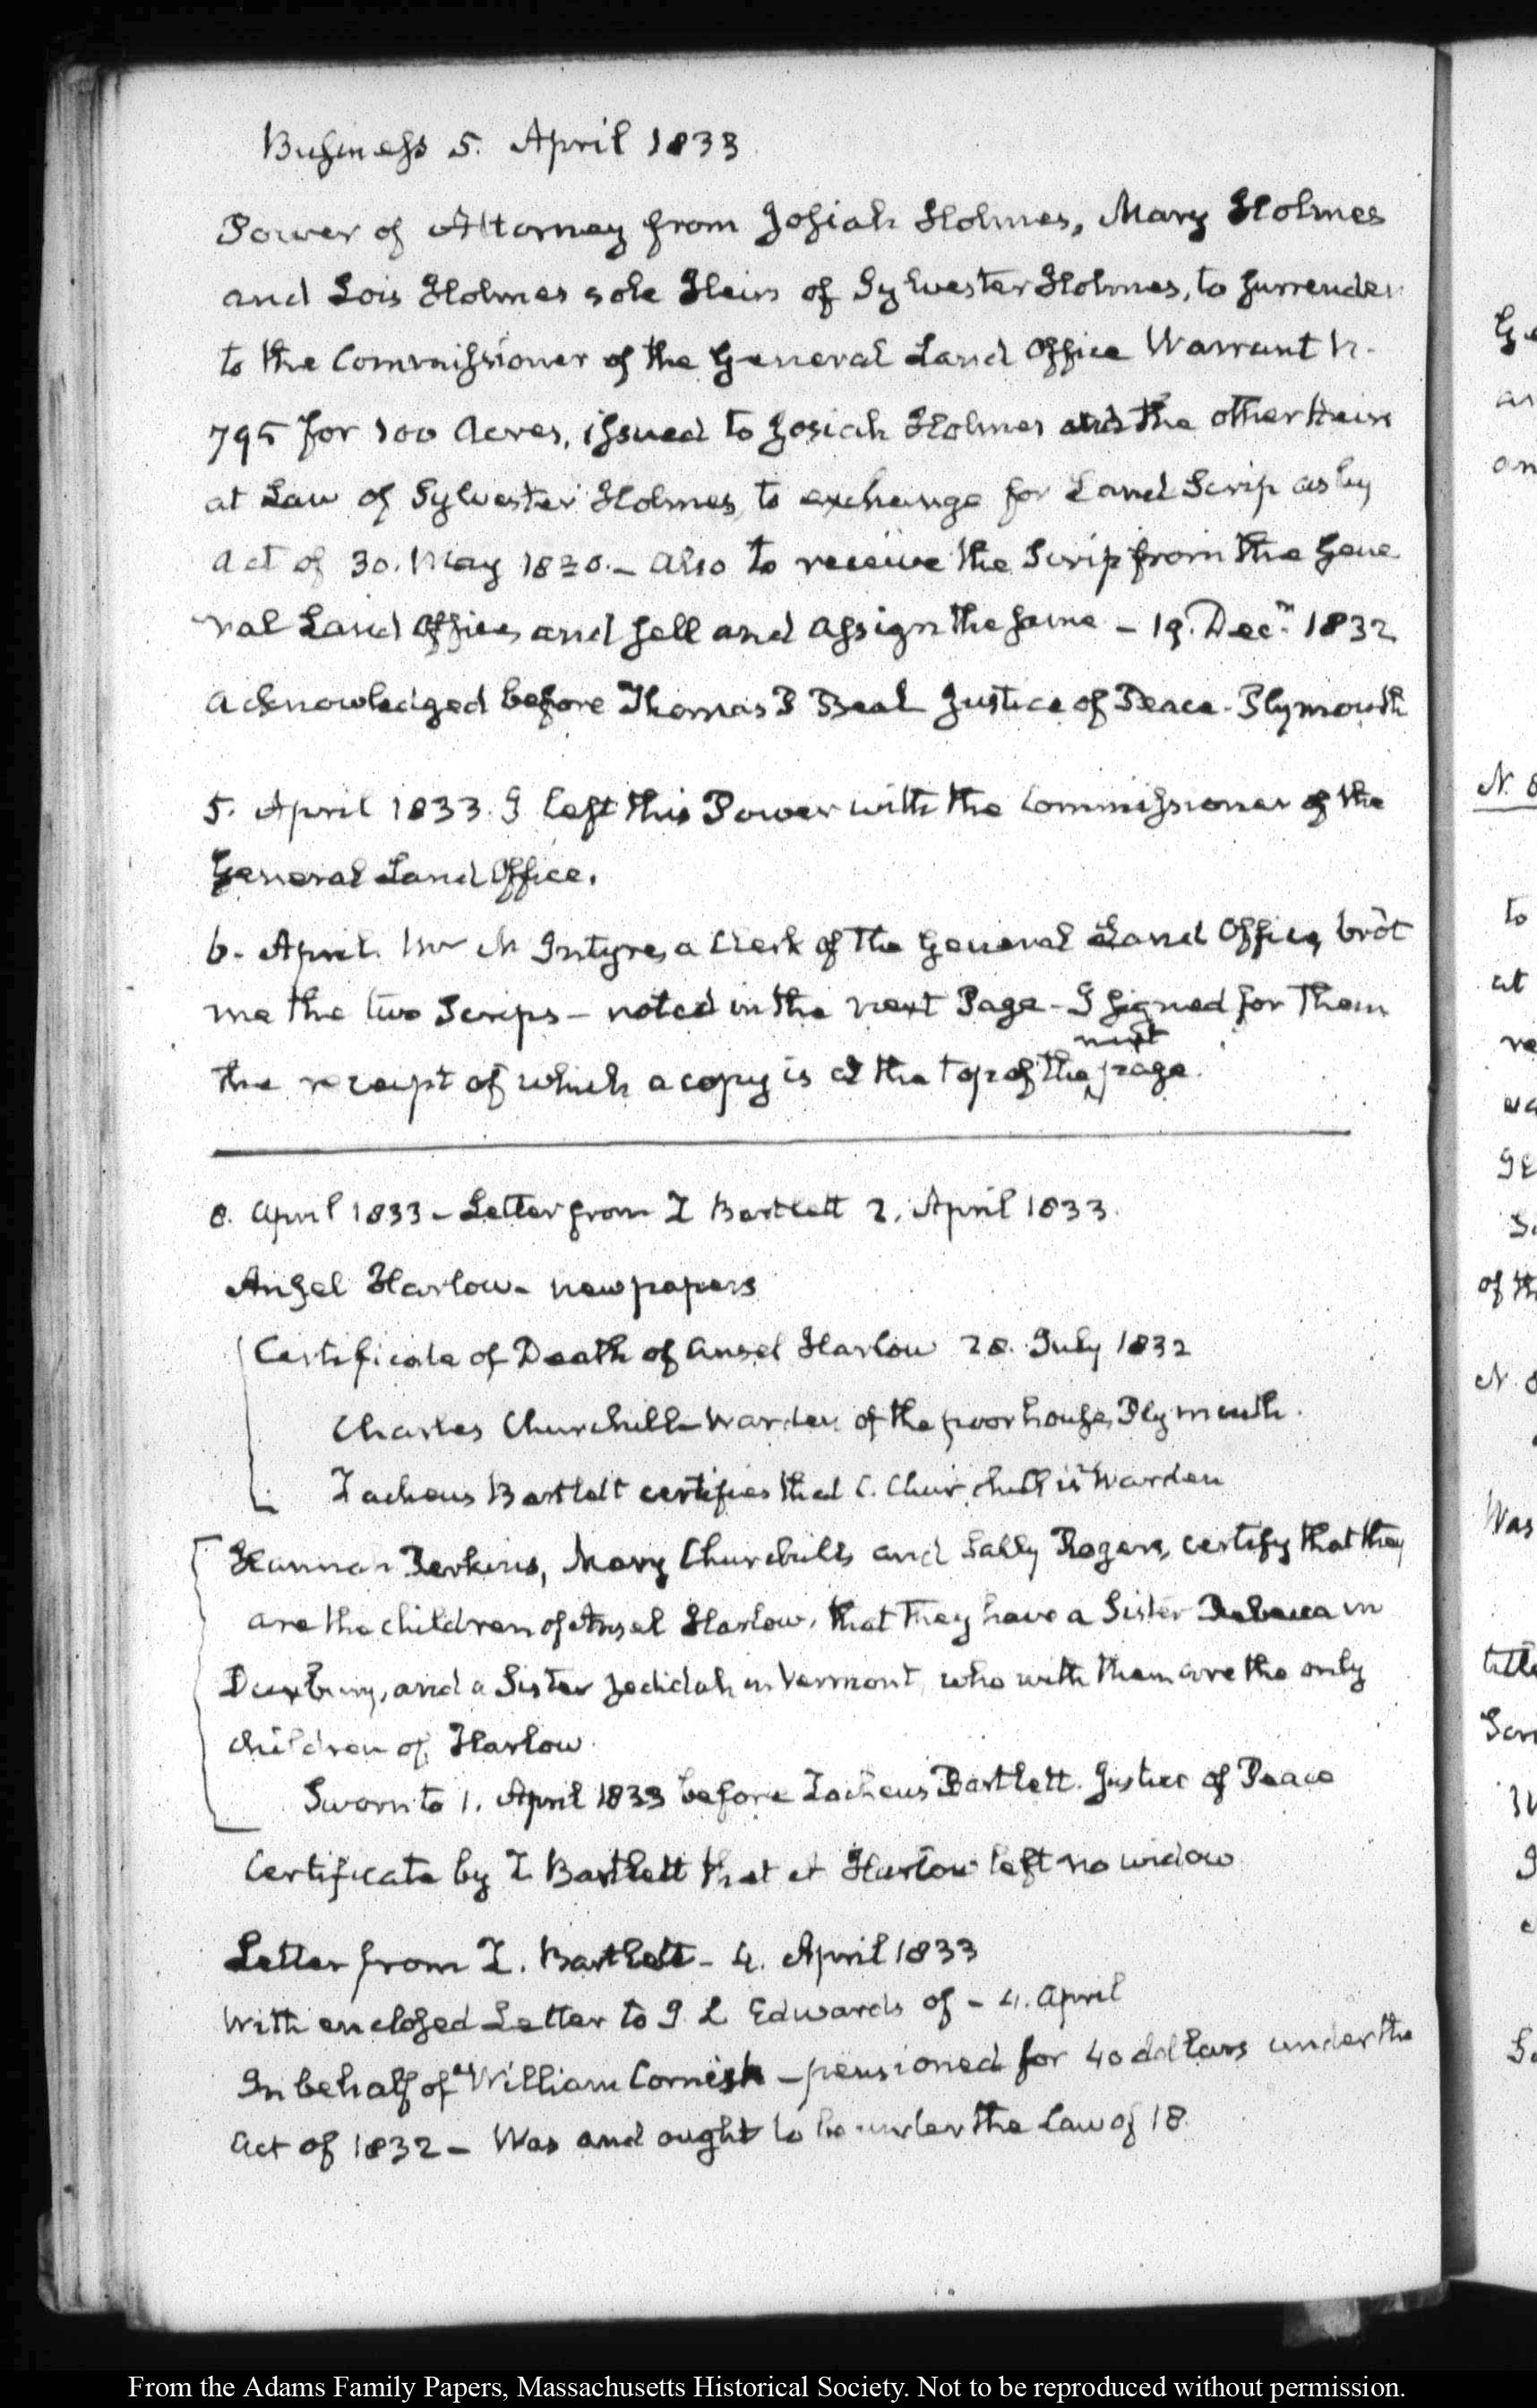 Business 5. April 1833
Power of Attorney from Josiah Holmes, Mary Holmes
and Lois Holmes sole Heirs of Sylvester Holmes, to surrender
to the Commissioner of the General Land Office Warrant N.
795 for 100 Acres, issued to Josiah Holmes and the other heirs
at Law of Sylvester Holmes, to exchange for Land Scrip as by
Act of 30. May 1830. – Also to receive the Scrip from the Gene
ral Land Office, and sell and assign the same – 19. Decr. 1832
acknowledged before Thomas P Beal Justice of Peace - Plymouth
5. April 1833. I left this Power with the Commissioner of the
General Land Office.
6. April. Mr McIntyre, a Clerk of the General Land Office, bro't
me the two Scrips – noted in the next Page – I signed for them
the receipt of which a copy is at the top of the next page.
8. April 1833 – Letter from Z Bartlett 2. April 1833.
Ansel Harlow – new papers
Certificate of Death of Ansel Harlow 28. July 1832
Charles Churchill – Warden of the poor house, Plymouth.
Zacheus Bartlett certifies that C. Churchill is Warden
Hannah Perkins, Mary Churchill and Sally Rogers, certify that they
are the children of Ansel Harlow, that they have a Sister Rebecca in
Duxbury, and a Sister Jedidah in Vermont, who with them are the only
children of Harlow.
Sworn to 1. April 1833 before Zacheus Bartlett. Justice of Peace
Certificate by Z Bartlett that A Harlow left no widow
Letter from Z. Bartlett – 4. April 1833
With enclosed Letter to J. L Edwards of – 4. April
In behalf of William Cornish – pensioned for 40 dollars under the
Act of 1832 – Was and ought to be under the Law of 18.
From the Adams Family Papers, Massachusetts Historical Society. Not to be reproduced without permission.